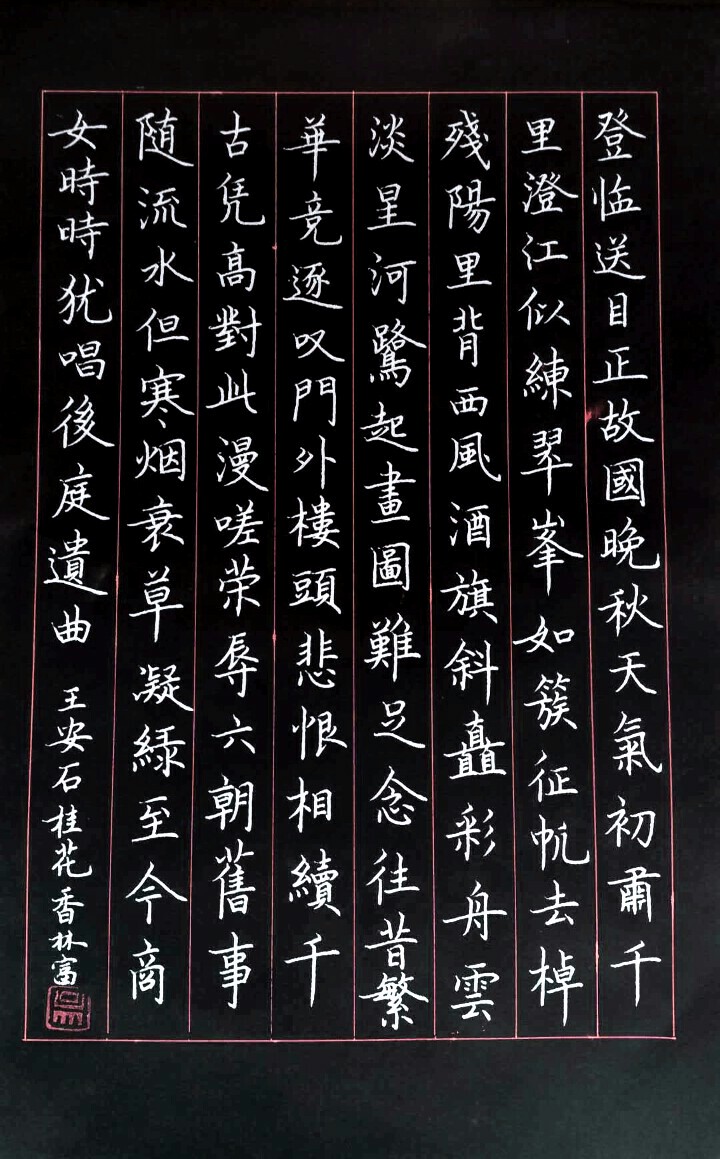 登临送目正故國晚秋天氣初肅千
里澄江似練翠峯如簇征帆去棹
殘陽里背西風酒旗斜矗彩舟雲
淡星河鷺起畫圖難足念往昔繁
華竞逐叹門外樓頭悲恨相續千
古凭高對此漫嗟荣辱六朝舊事
随流水但寒烟衰草凝绿至今商
女時時犹唱後庭遺曲 王安石桂花香林富